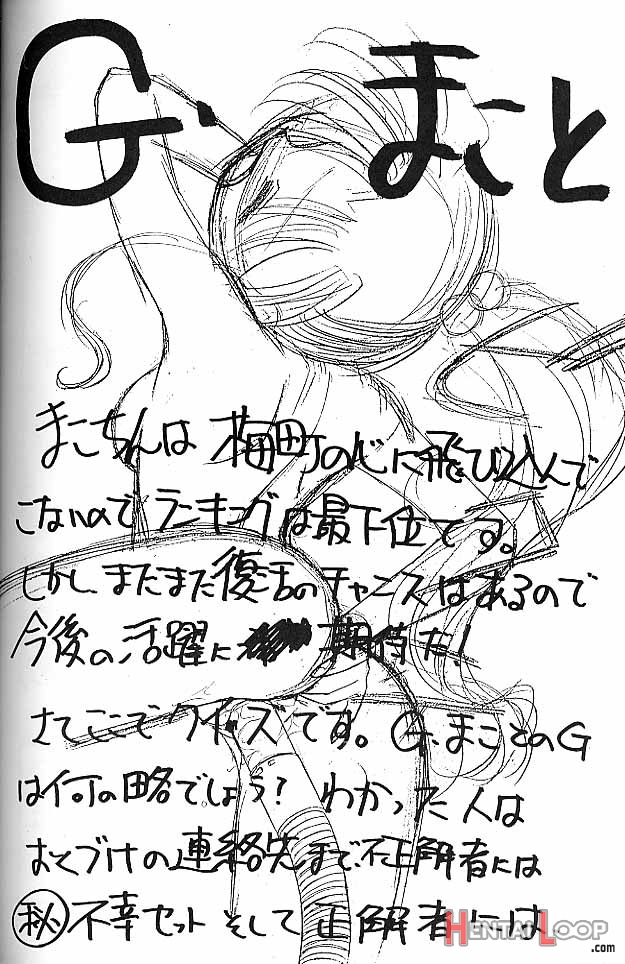 G・まこと
まこちんは 梅町の心に飛び込んで
こないのでランキングは最下位です。
しかし、まだまだ復活のチャンスはあるので
今後の活躍に 期待だ!
さてここでクイズです。G.まことのG
は何の略でしょう? わかった人は
おくづけの連絡先まで、不正解者には
㊙不幸セット そして正解者には
HENTAI LOOP
.com